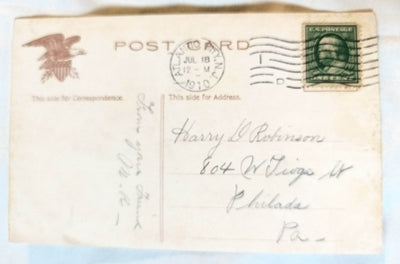 POST CARD
ATLANTIC CITY, N.J.
JUL 18
12 - M
1910
U.S. POSTAGE
This side for Correspondence.
This side for Address.
From your friend
Harry D Robinson
804 W Tioga St
Philada
Pa